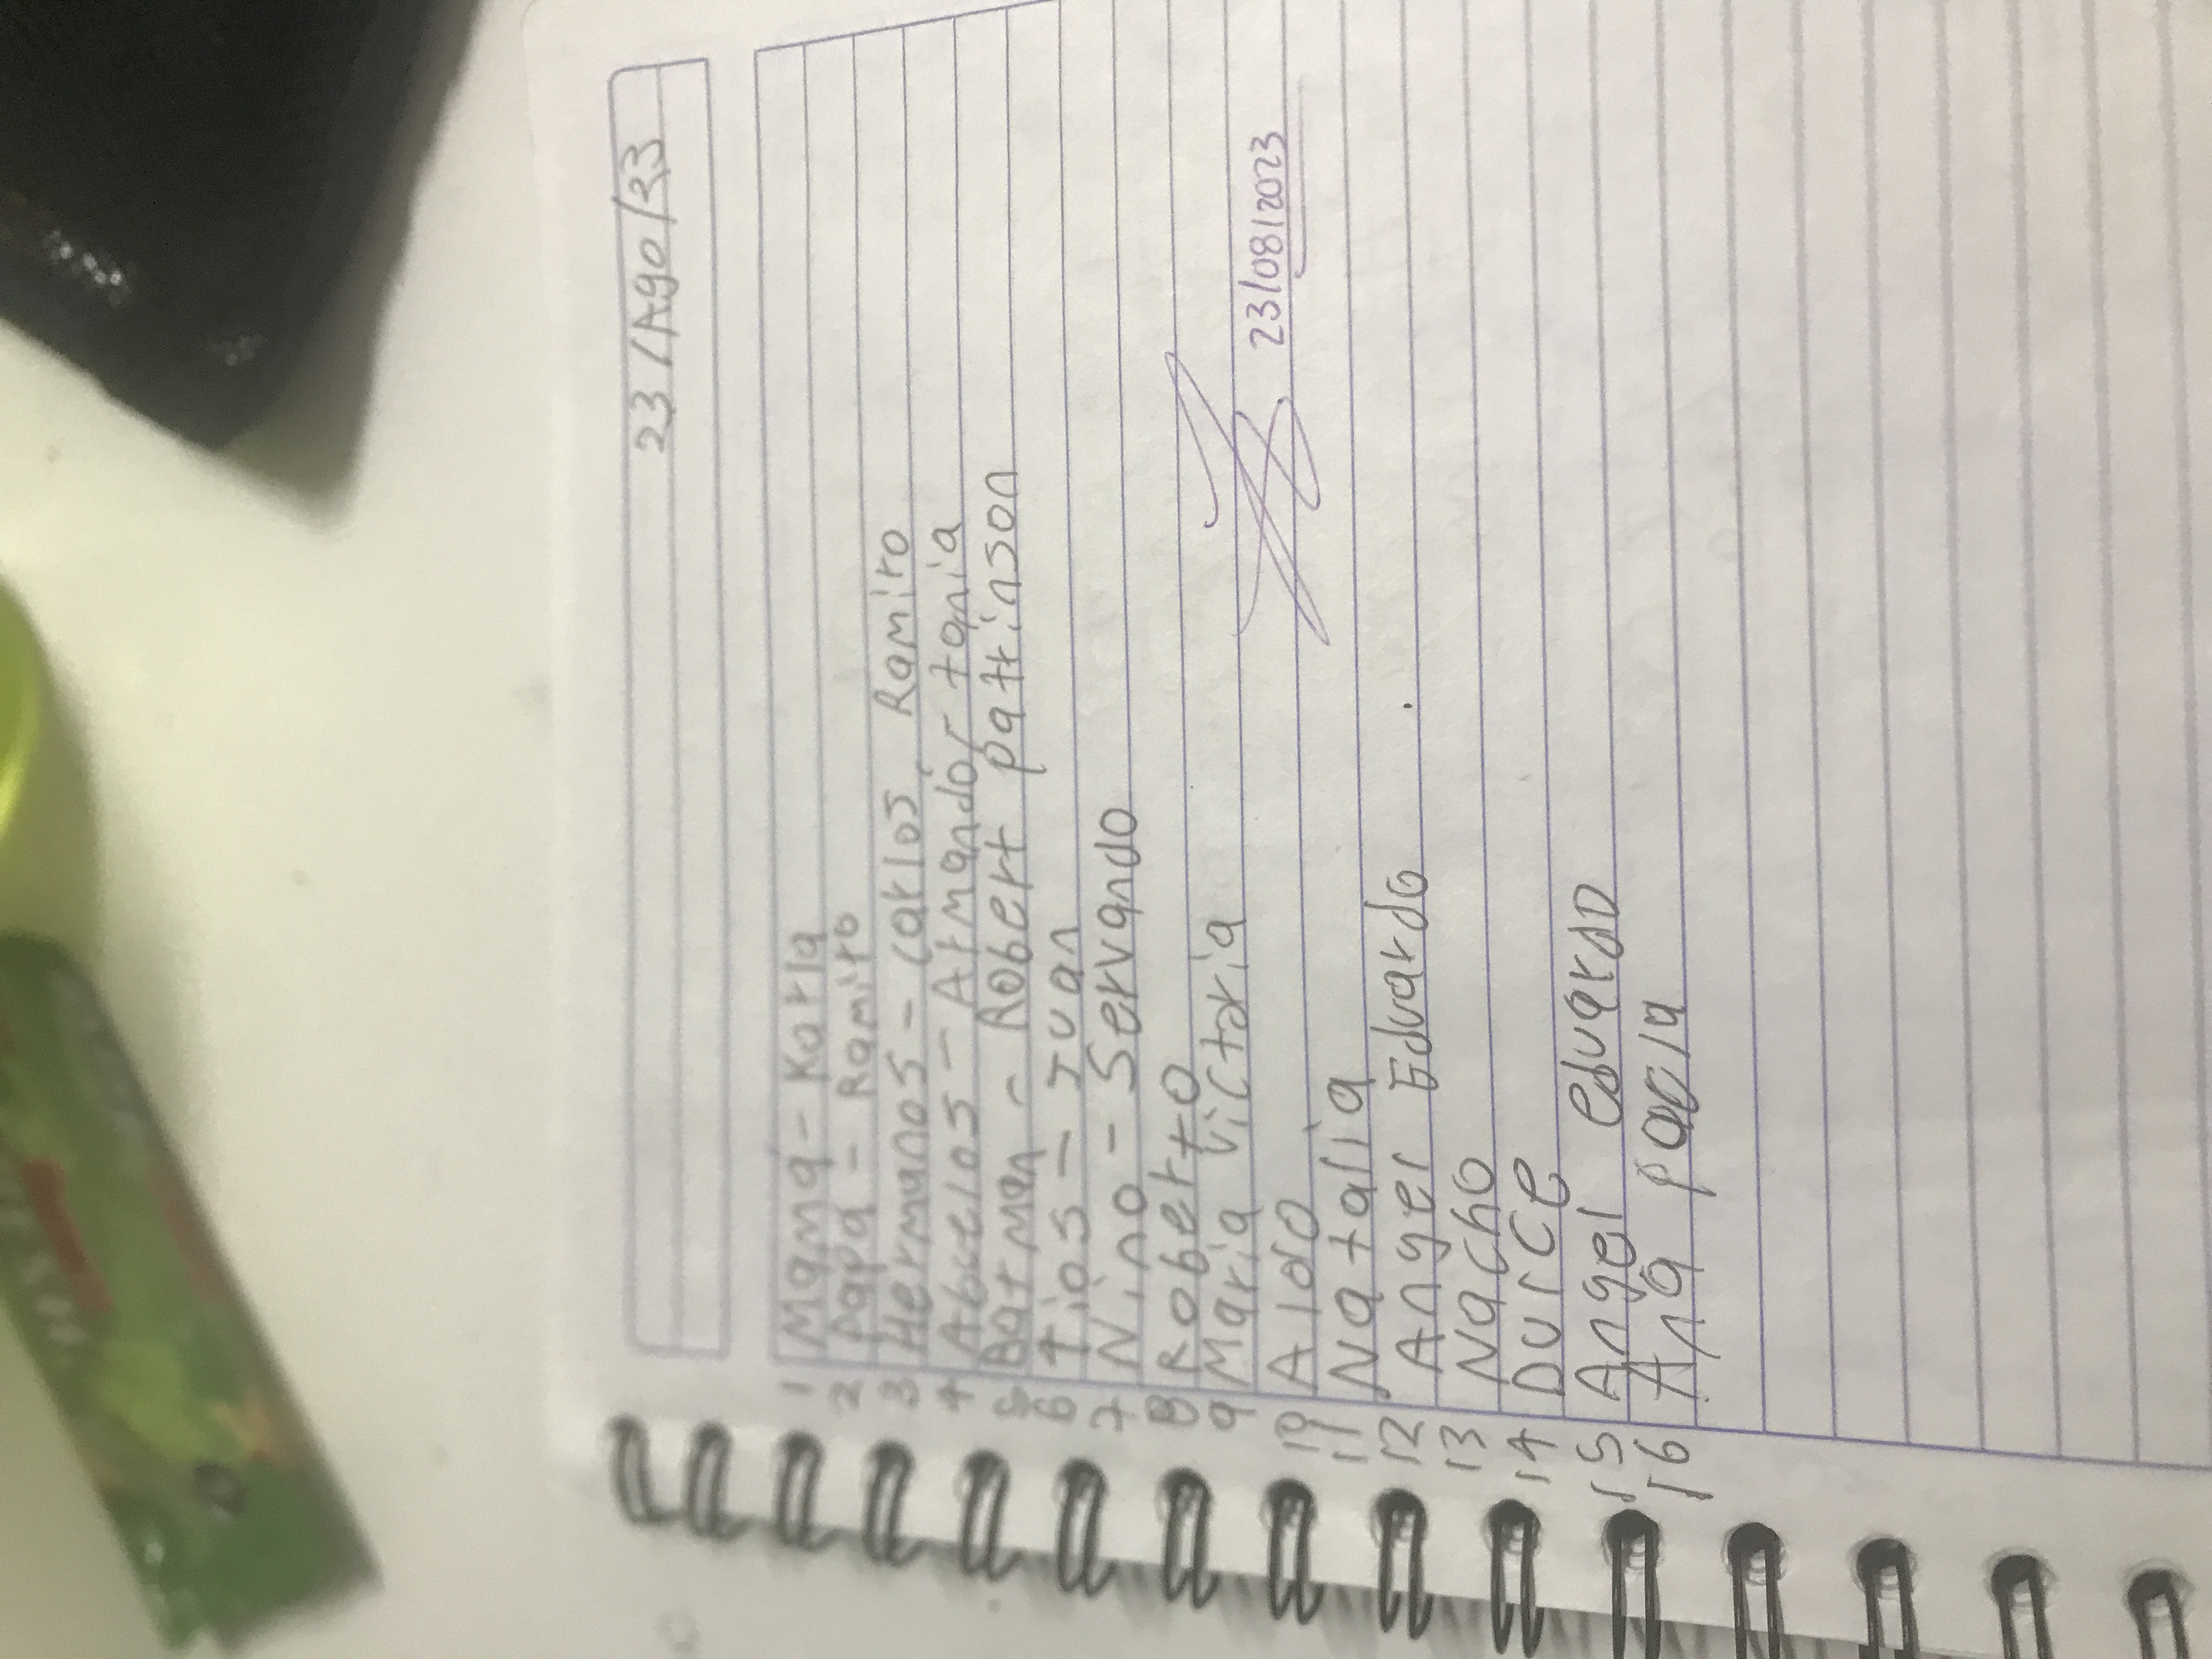 23/Ago/23
1 Mamá - Karla
2 papá - Ramiro
3 Hermanos - carlos, Ramiro
4 Abuelos - Armando, tania
5 Batman - Robert pattinson
6 tios - Juan
7 Nino - Servando
8 Roberto
9 Maria victoria
23/08/2023
10 Aldo
11 Natalia
12 Angel Eduardo
13 Nacho
14 Dulce
15 Angel eduardo
16 Ana paola